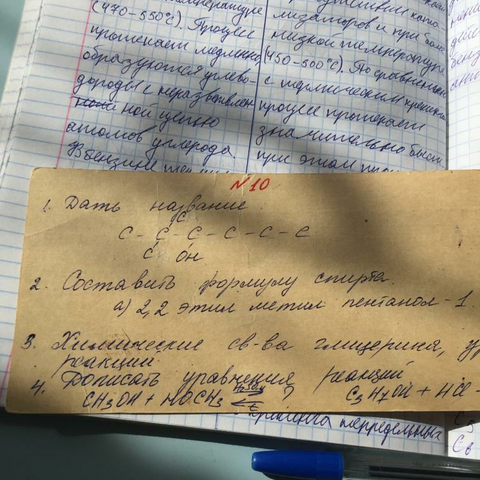 (470-550°С). Процес
протекает медленно
образуются углево-
дороды с неразветвлен
ной цепью
атомов углерода.
В бензине
и при более
низкой температуре
(450-500°С). По сравнению
с термическим
процес протекает
значительно
при этом
№10
1. Дать название
С
С - С - С - С - С - С
С ОН
2. Составить формулу спирта.
а) 2,2 этил метил пентанол-1.
3. Химические св-ва глицерина, ур
реакций.
4. Дописать уравнения реакций
CH3OH + HOCH3 ⇄ ? C3H7OH + HCl -